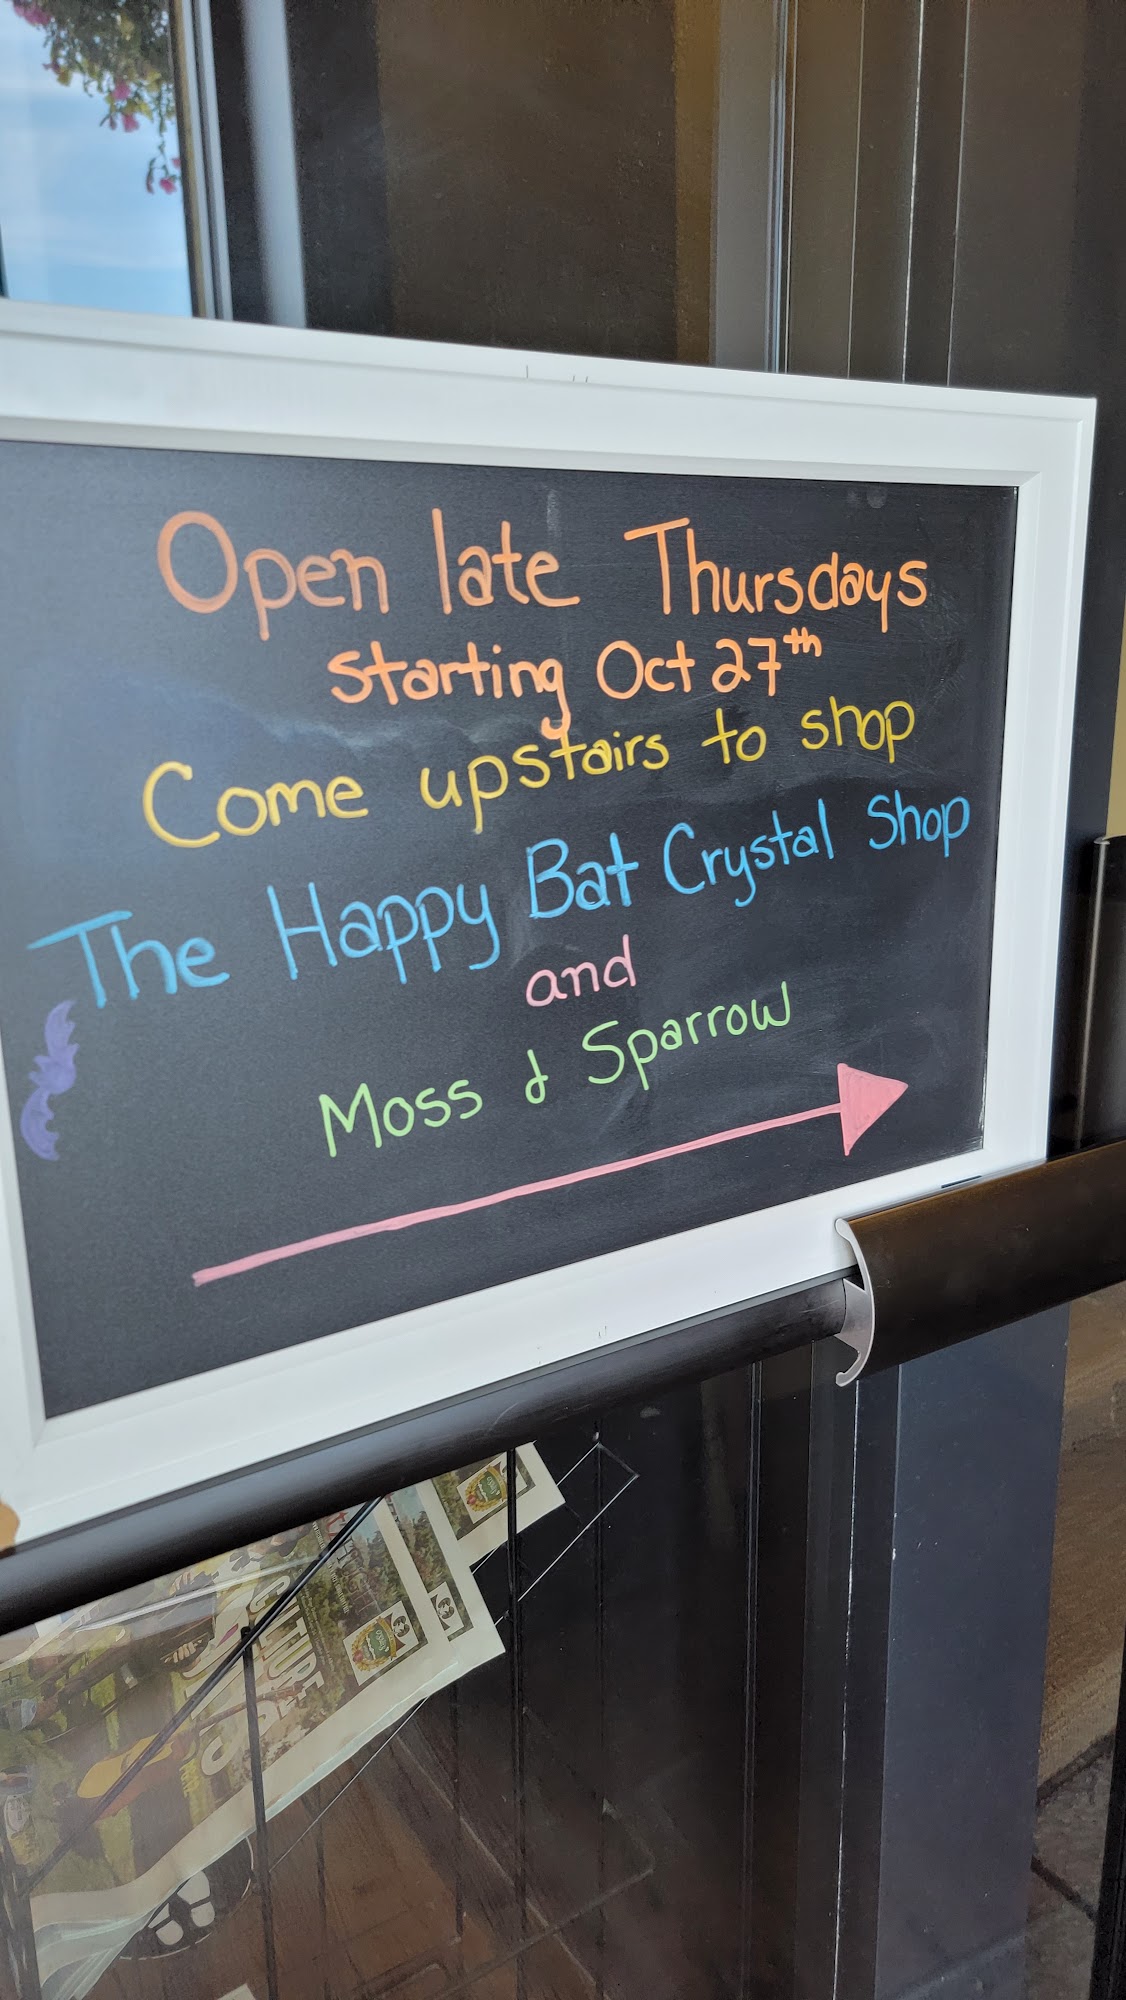 Open late Thursdays
starting Oct 27th
Come upstairs to shop
The Happy Bat Crystal Shop
and
Moss & Sparrow
CULTURE
DAYS